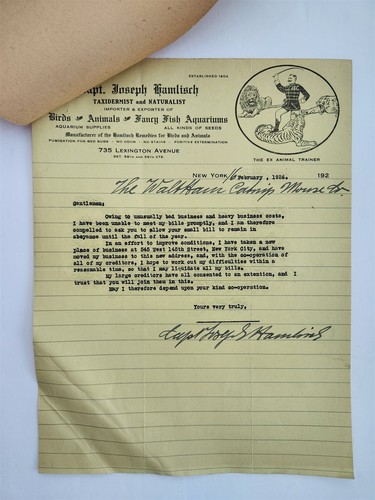 ESTABLISHED 1904
Capt. Joseph Hamlisch
TAXIDERMIST and NATURALIST
IMPORTER & EXPORTER OF
Birds Animals Fancy Fish Aquariums
AQUARIUM SUPPLIES ALL KINDS OF SEEDS
Manufacturer of the Hamlisch Remedies for Birds and Animals
FUMIGATION FOR BED BUGS - NO ODOR - NO STAINS - POSITIVE EXTERMINATION
735 LEXINGTON AVENUE
BET. 58TH AND 59TH STS.
THE EX ANIMAL TRAINER
NEW YORK, 6 February, 1926. 192
The Waltham Mouse Co.
Gentlemen:
Owing to unusually bad business and heavy business costs,
I have been unable to meet my bills promptly, and I am therefore
compelled to ask you to allow your small bill to remain in
abeyance until the fall of the year.
In an effort to improve conditions, I have taken a new
place of business at 545 West 145th Street, New York City, and have
moved my business to this new address, and, with the co-operation of
all of my creditors, I hope to work out my difficulties within a
reasonable time, so that I may liquidate all my bills.
My large creditors have all consented to an extention, and I
trust that you will join them in this.
May I therefore depend upon your kind co-operation.
Yours very truly,
Capt Joseph Hamlisch